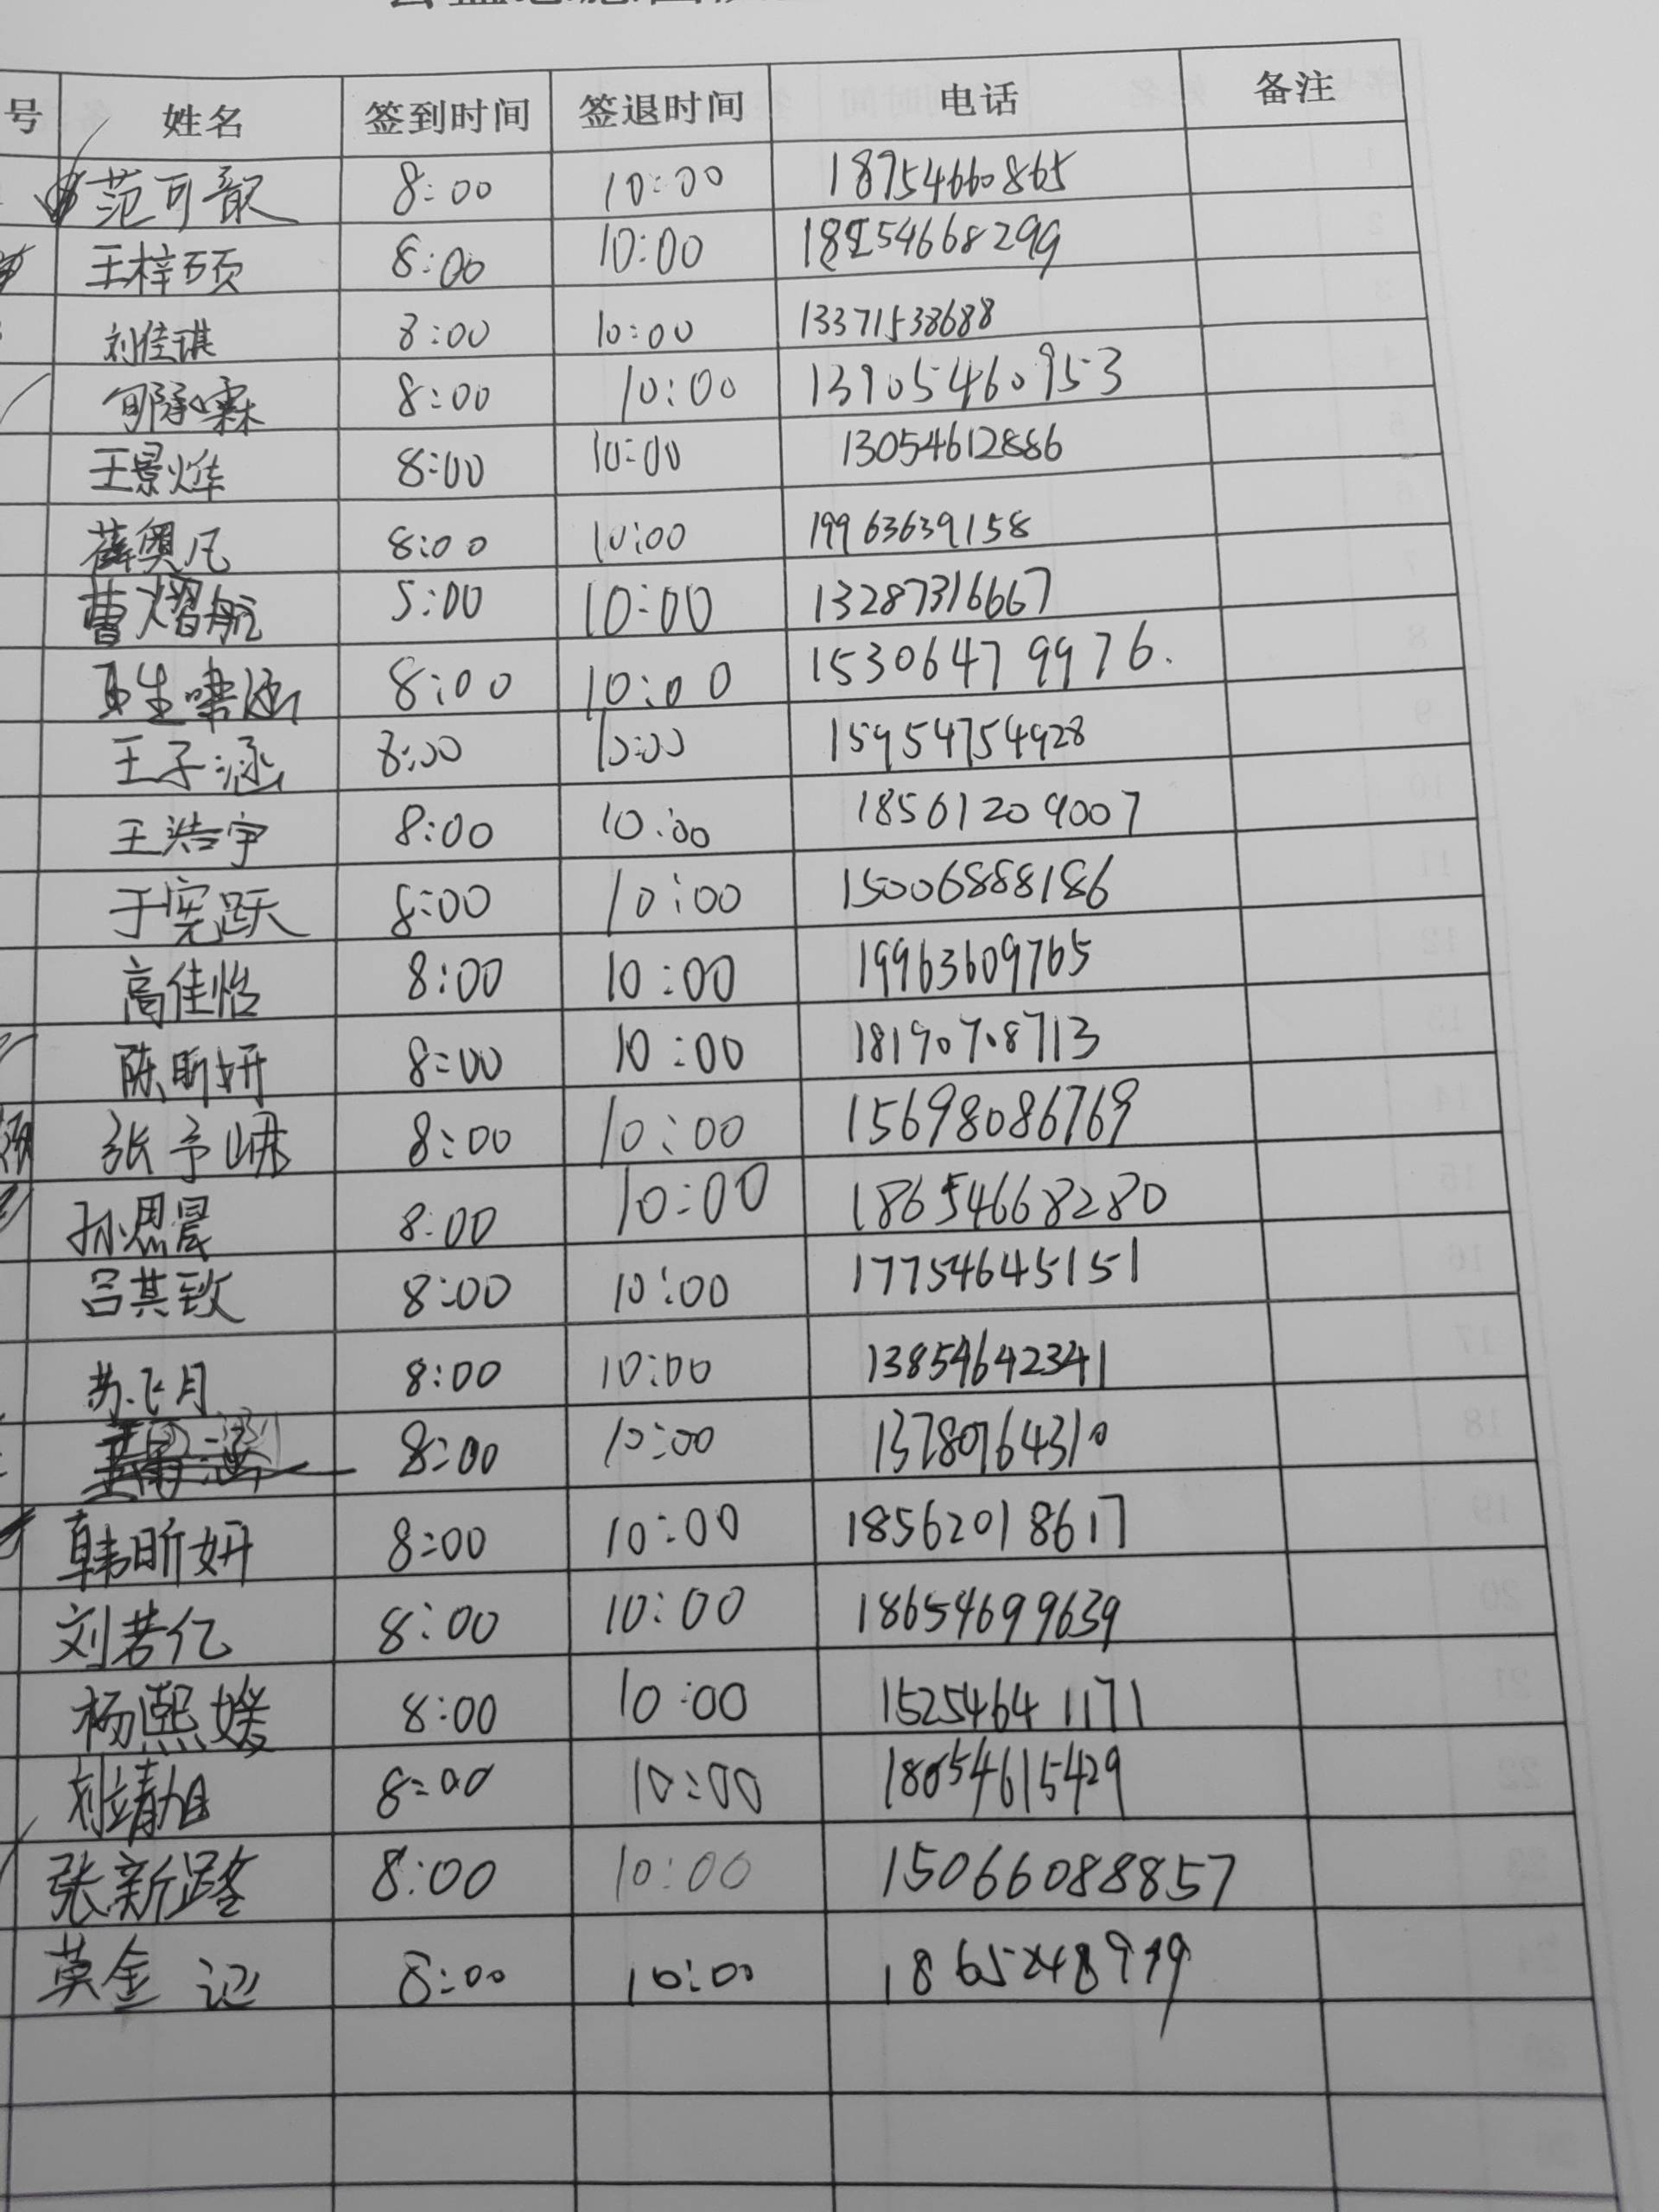 号 姓名 签到时间 签退时间 电话 备注
范可歆 8:00 10:00 18754660865
王梓硕 8:00 10:00
刘佳琪 8:00 10:00 13371538688
8:00 10:00 13905460953
王景烨 8:00 10:00 13054612886
薛奥凡 8:00 10:00 19963639158
曹熠航 8:00 10:00 13287316667
8:00 10:00 15306479976.
王子涵 8:00 10:00 15954754928
王浩宇 8:00 10:00 18561209007
于宪跃 8:00 10:00 15006888186
高佳怡 8:00 10:00 19963609765
陈昕妍 8:00 10:00 18190708713
张予 8:00 10:00 15698086769
孙思晨 8:00 10:00 18654668280
吕其致 8:00 10:00 17754645151
苏飞月 8:00 10:00 13854642341
8:00 10:00 13780764310
韩昕妍 8:00 10:00 18562018617
刘若亿 8:00 10:00 18654699639
杨熙媛 8:00 10:00 15254641171
刘靖旭 8:00 10:00 18054615429
张新路 8:00 10:00 15066088857
8:00 10:00